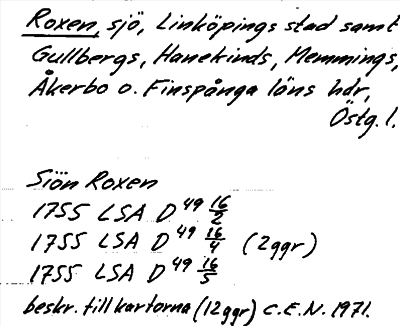 Roxen, sjö, Linköpings stad samt
Gullbergs, Hanekinds, Memmings,
Åkerbo o. Finspånga läns hdr,
Östg. l.
Sjön Roxen
1755 LSA D 49 16/2
1755 LSA D 49 16/4 (2ggr)
1755 LSA D 49 16/5
beskr. till kartorna (12ggr) C.E.N. 1971.